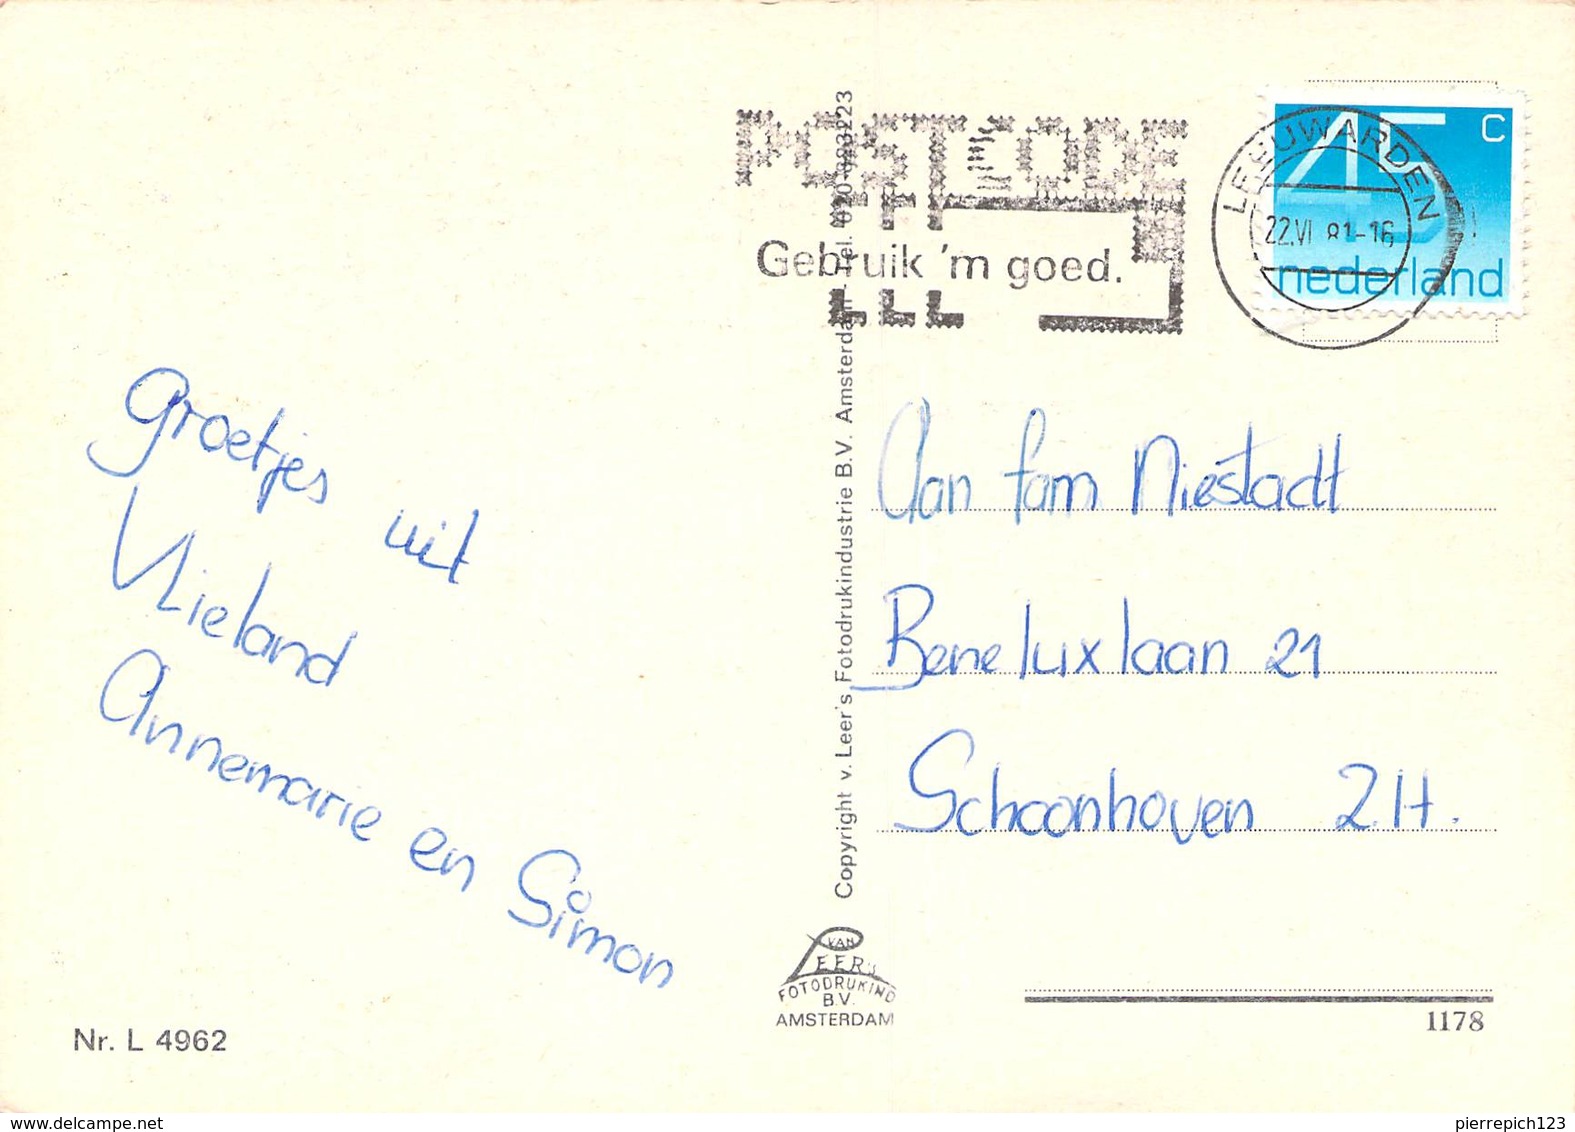 POSTCODE
Gebruik 'm goed.
LEEUWARDEN
22.VI 81-16
45 C
nederland
Groetjes uit
Vlieland
Annemarie en Simon
Copyright v. Leer's Fotodrukindustrie B.V. Amsterdam - Tel. 020-883223
Aan fam Niestadt
Beneluxlaan 21
Schoonhoven Z.H.
VAN
LEER'S
FOTODRUKIND
B.V.
AMSTERDAM
1178
Nr. L 4962
delcampe.net
pierrepich123